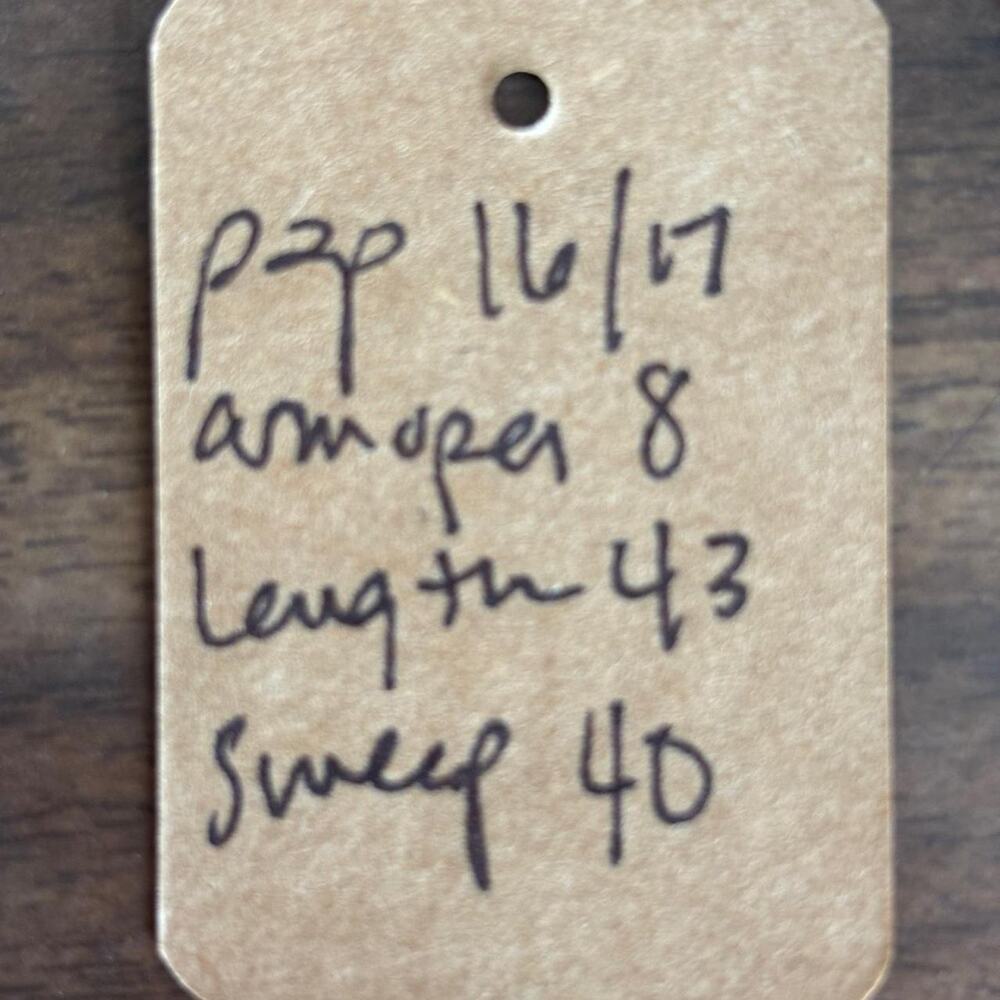 p2p 16/17
armopen 8
Length 43
Sweep 40